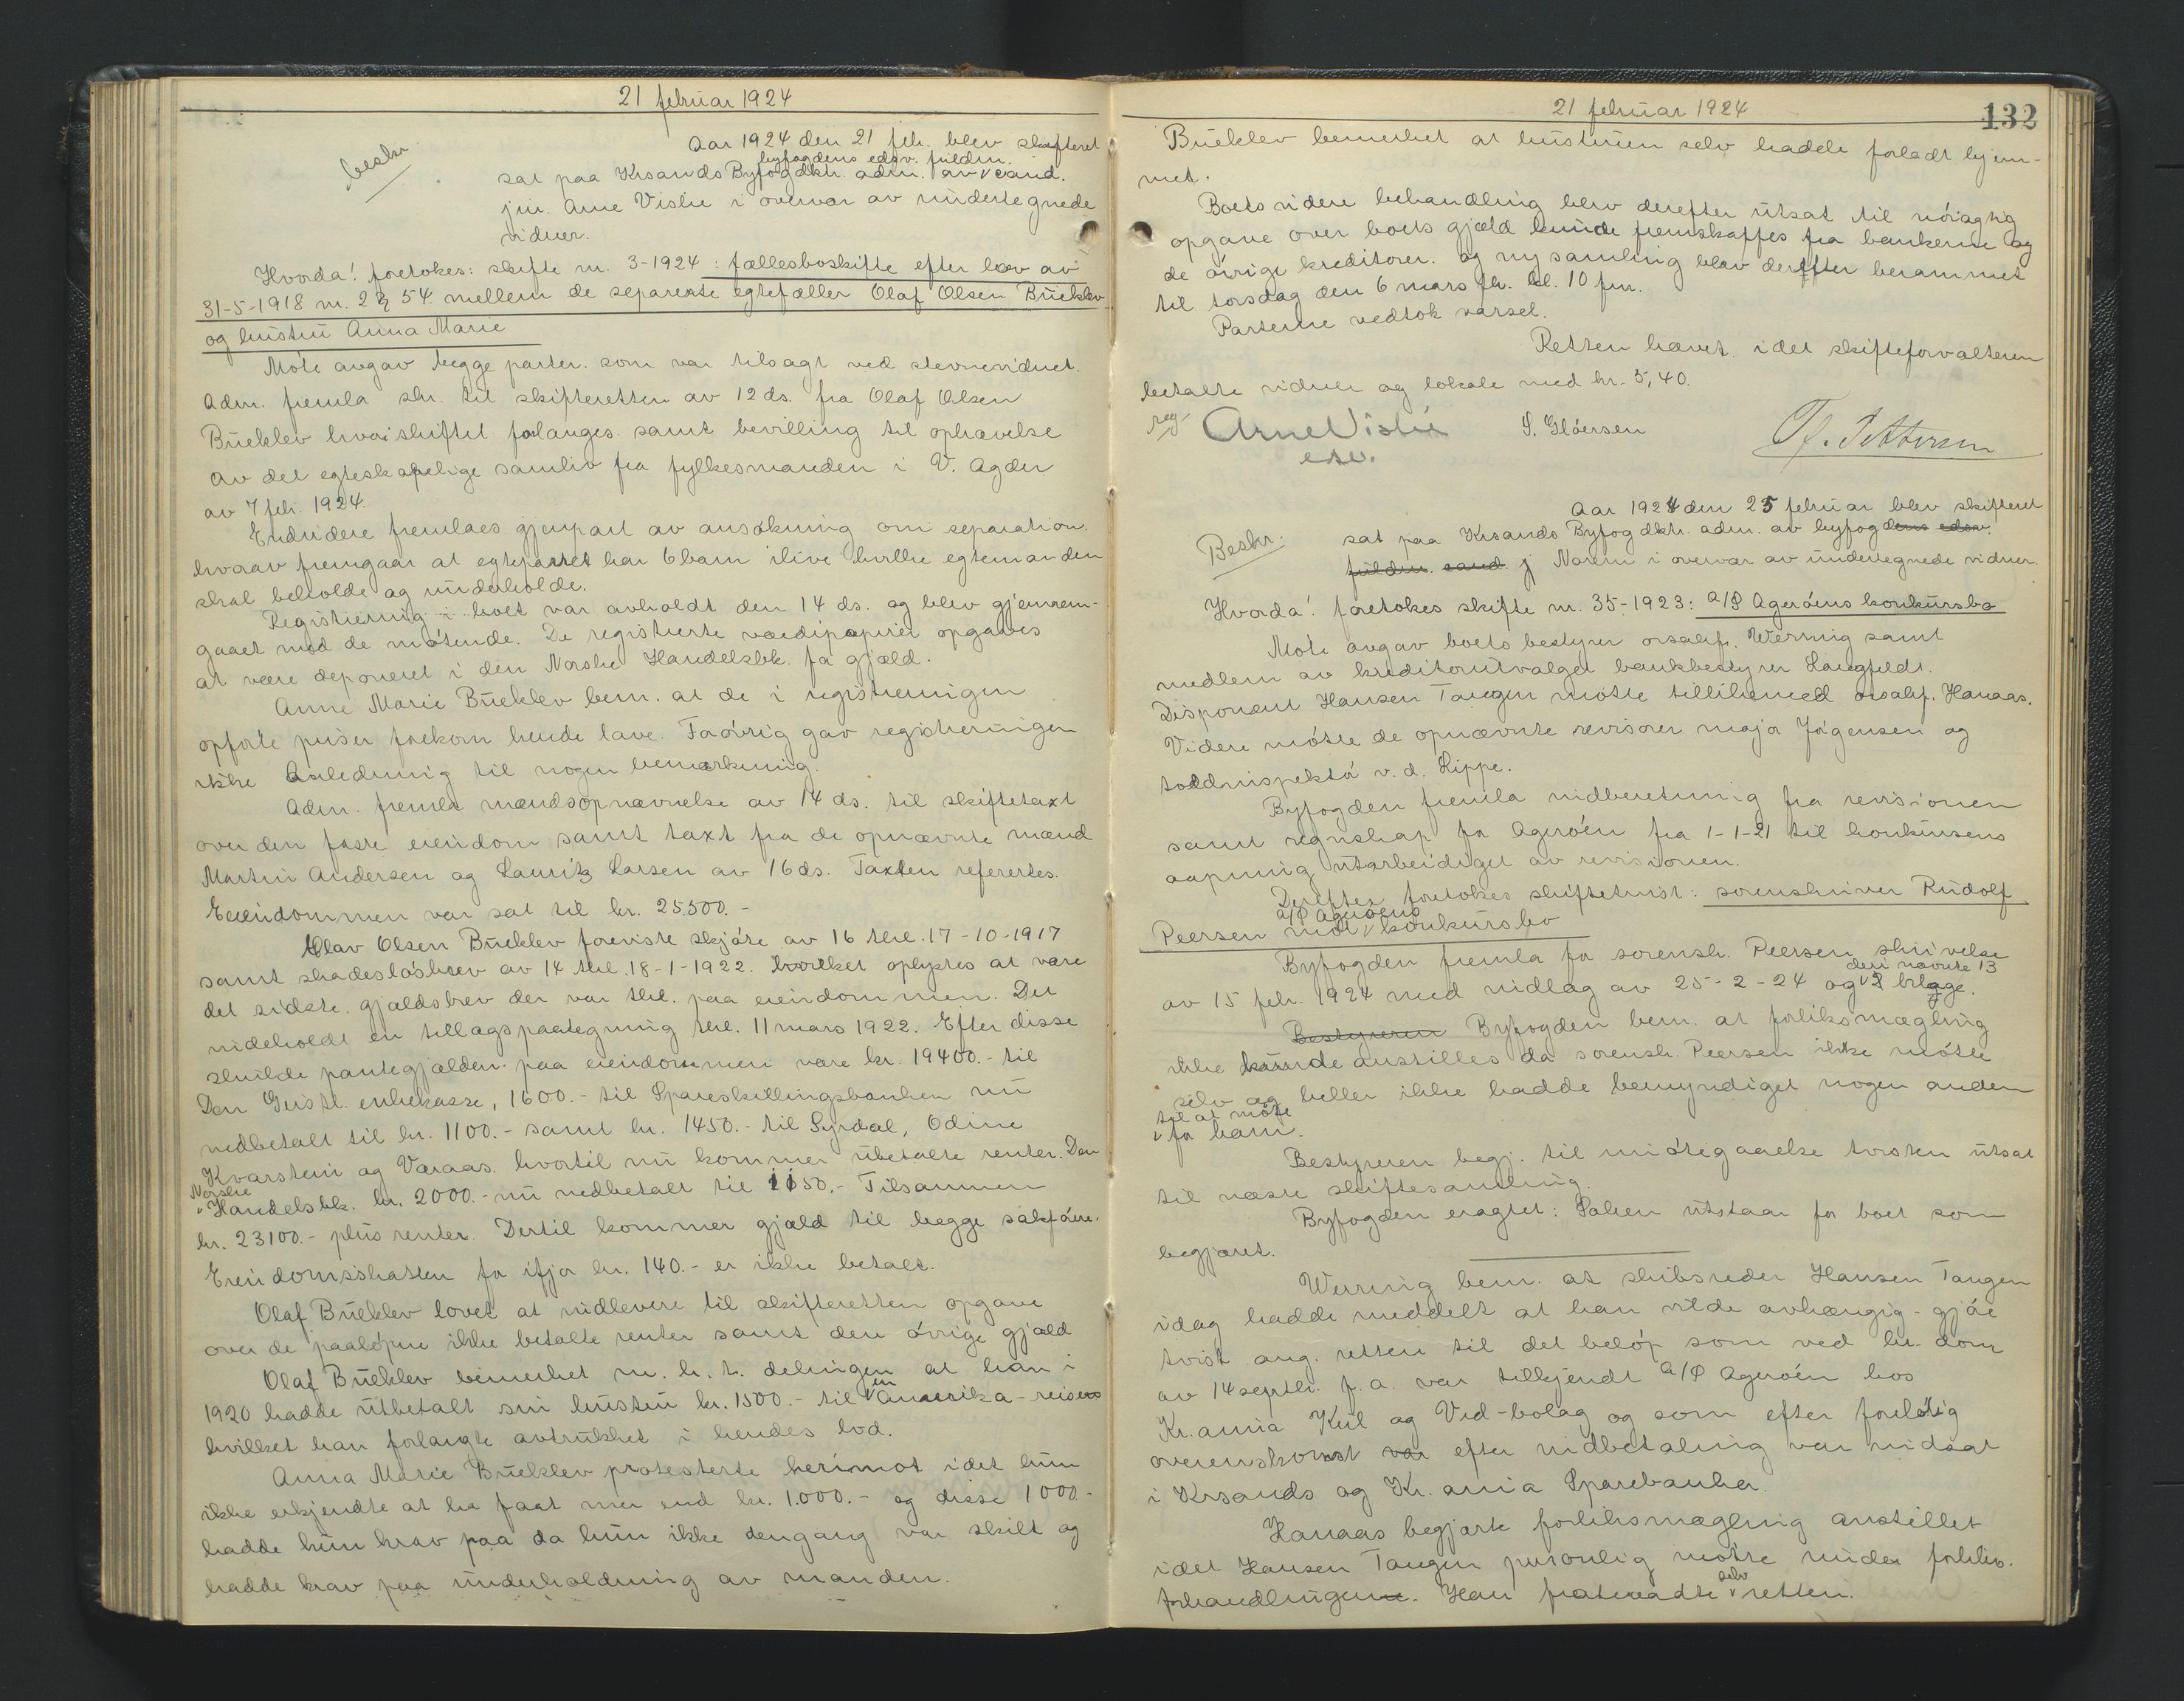 21 februar 1924
beskr.
Aar 1924 den 21 feb. blev skifteret
byfogdens edsv. fuldm.
sat paa Krsands Byfogdktr. adm. av cand.
jur. Arne Vislie i overvær av undertegnede
vidner.
Hvorda! foretokes: skifte nr. 3-1924: fællesboskifte efter lov av
31-5-1918 nr. 2 § 54 mellem de separerte egtefæller Olaf Olsen Bueklev
og hustru Anna Marie
Møte avgav begge parter som var tilsagt ved stevnevidnet.
Adm. fremla skr. til skifteretten av 12 ds. fra Olaf Olsen
Bueklev hvori skiftet forlanges samt bevilling til ophævelse
av det egteskapelige samliv fra fylkesmanden i V. Agder
av 7 feb. 1924.
Endvidere fremlaes gjenpart av ansøkning om separation
hvorav fremgaar at egteparret har 6 barn ilive hvilke egtemanden
skal beholde og underholde.
Registrering i boet var avholdt den 14 ds. og blev gjennem-
gaaet med de møtende. De registrerte værdipapirer opgaves
at være deponeret i den Norske Handelsbk. for gjæld.
Anne Marie Bueklev bem. at de i registreringen
opførte priser forekom hende lave. Forøvrig gav registreringen
ikke anledning til nogen bemærkning.
Adm. fremla mændsopnævnelse av 14 ds. til skiftetaxt
over den faste eiendom samt taxt fra de opnævnte mænd
Martin Andersen og Lauritz Larsen av 16 ds. Taxten refertes.
Eiendommen var sat til kr. 25.500.-
Olav Olsen Bueklev foreviste skjøte av 16 thl. 17-10-1917
samt skadesløsbrev av 14 thl. 18-1-1922. hvilket oplystes at være
det sidste gjældsbrev der var thl. paa eiendommen. Det
indeholdt en tillægspaategning thl. 11 mars 1922. Efter disse
skulde pantegjælden paa eiendommen være kr. 19400.- til
Den Geistl. enkekasse, 1600.- til Spareskillingsbanken nu
nedbetalt til kr. 1100.- samt kr. 1450.- til Syrdal, Odine
Kvarstein og Varaas. hvortil nu kommer ubetalte renter. Den
Norske
Handelsbk. kr. 2000.- nu nedbetalt til 1150.- Tilsammen
kr. 23100.- plus renter. Dertil kommer gjæld til begge sakførere.
Eiendomsskatten for ifjor kr. 140.- er ikke betalt.
Olaf Bueklev lovet at indlevere til skifteretten opgave
over de paaløpne ikke betalte renter samt den øvrige gjæld
Olaf Bueklev bemerket m. h. t. delingen at han i
en
1920 hadde utbetalt sin hustru kr. 1500.- til Amerika-reise
hvilket han forlangte avtrukket i hendes lod.
Anna Marie Bueklev protesterte herimot idet hun
ikke erkjendte at ha faat mer end kr. 1.000.- og disse 1000.-
hadde hun krav paa da hun ikke dengang var skilt og
hadde krav paa underholdning av manden.
21 februar 1924
132
Bueklev bemerket at hustruen selv hadde forladt hjem-
met.
Boets videre behandling blev derefter utsat til nøiagtig
opgave over boets gjæld kunde fremskaffes fra bankerne og
de øvrige kreditorer. og ny samling blev derefter berammet
til torsdag den 6 mars fk. kl. 10 fm.
Parterne vedtok varsel.
Retten hævet. idet skifteforvalteren
betalte vidner og lokale med kr. 5,40.
Arne Vislie
S. Gløersen
Tf. Pettersen
esv.
Beskr.
Aar 1924 den 25 februar blev skifteret
sat paa Krsands Byfogdktr. adm. av byfogdens edsv.
fuldm. cand. j Narem i overvær av undertegnede vidner.
Hvorda! foretokes skifte nr. 35-1923: A/S Agerøens konkursbo
Møte avgav boets bestyrer orsakf. Werring samt
medlem av kreditorutvalget bankbestyrer Langfeldt.
Disponent Hansen Tangen møtte tillikemed orsakf. Hanaas.
Videre møtte de opnævnte revisorer major Jørgensen og
toldinspektør v. d. Lippe.
Byfogden fremla indberetning fra revisionen
samt regnskap for Agerøen fra 1-1-21 til konkursens
aapning utarbeidiget av revisionen.
Derefter foretokes skiftetvist: sorenskriver Rudolf
A/S Agerøens
Peersen mot konkursbo
Byfogden fremla for sorensk. Peersen skrivelse
den nævnte 13
av 15 feb. 1924 med indlæg av 25-2-24 og bilage.
Bestyreren Byfogden bem. at forliksmægling
ikke kunde anstilles da sorensk. Peersen ikke møtte
selv og heller ikke hadde bemyndiget nogen anden
til at møte
for ham.
Bestyreren begj. til imøtegaaelse tvisten utsat
til næste skiftesamling.
Byfogden eragtet: Saken utstaar for boet som
begjæret.
Werring bem. at skibsreder Hansen Tangen
idag hadde meddelt at han vilde avhængig-gjøre
tvist ang. retten til det beløp som ved hr. dom
av 14 septbr. f. a. var tilkjendt A/S Agerøen hos
Kr.ania Kul og Ved-bolag og som efter foreløbig
overenskomst var efter indbetaling var indsat
i Krsands og Kr. ania Sparebanker.
Hanaas begjærte forliksmægling anstillet
idet Hansen Tangen personlig møtte under forliks.
selv
forhandlingene. Han fratraadte retten.